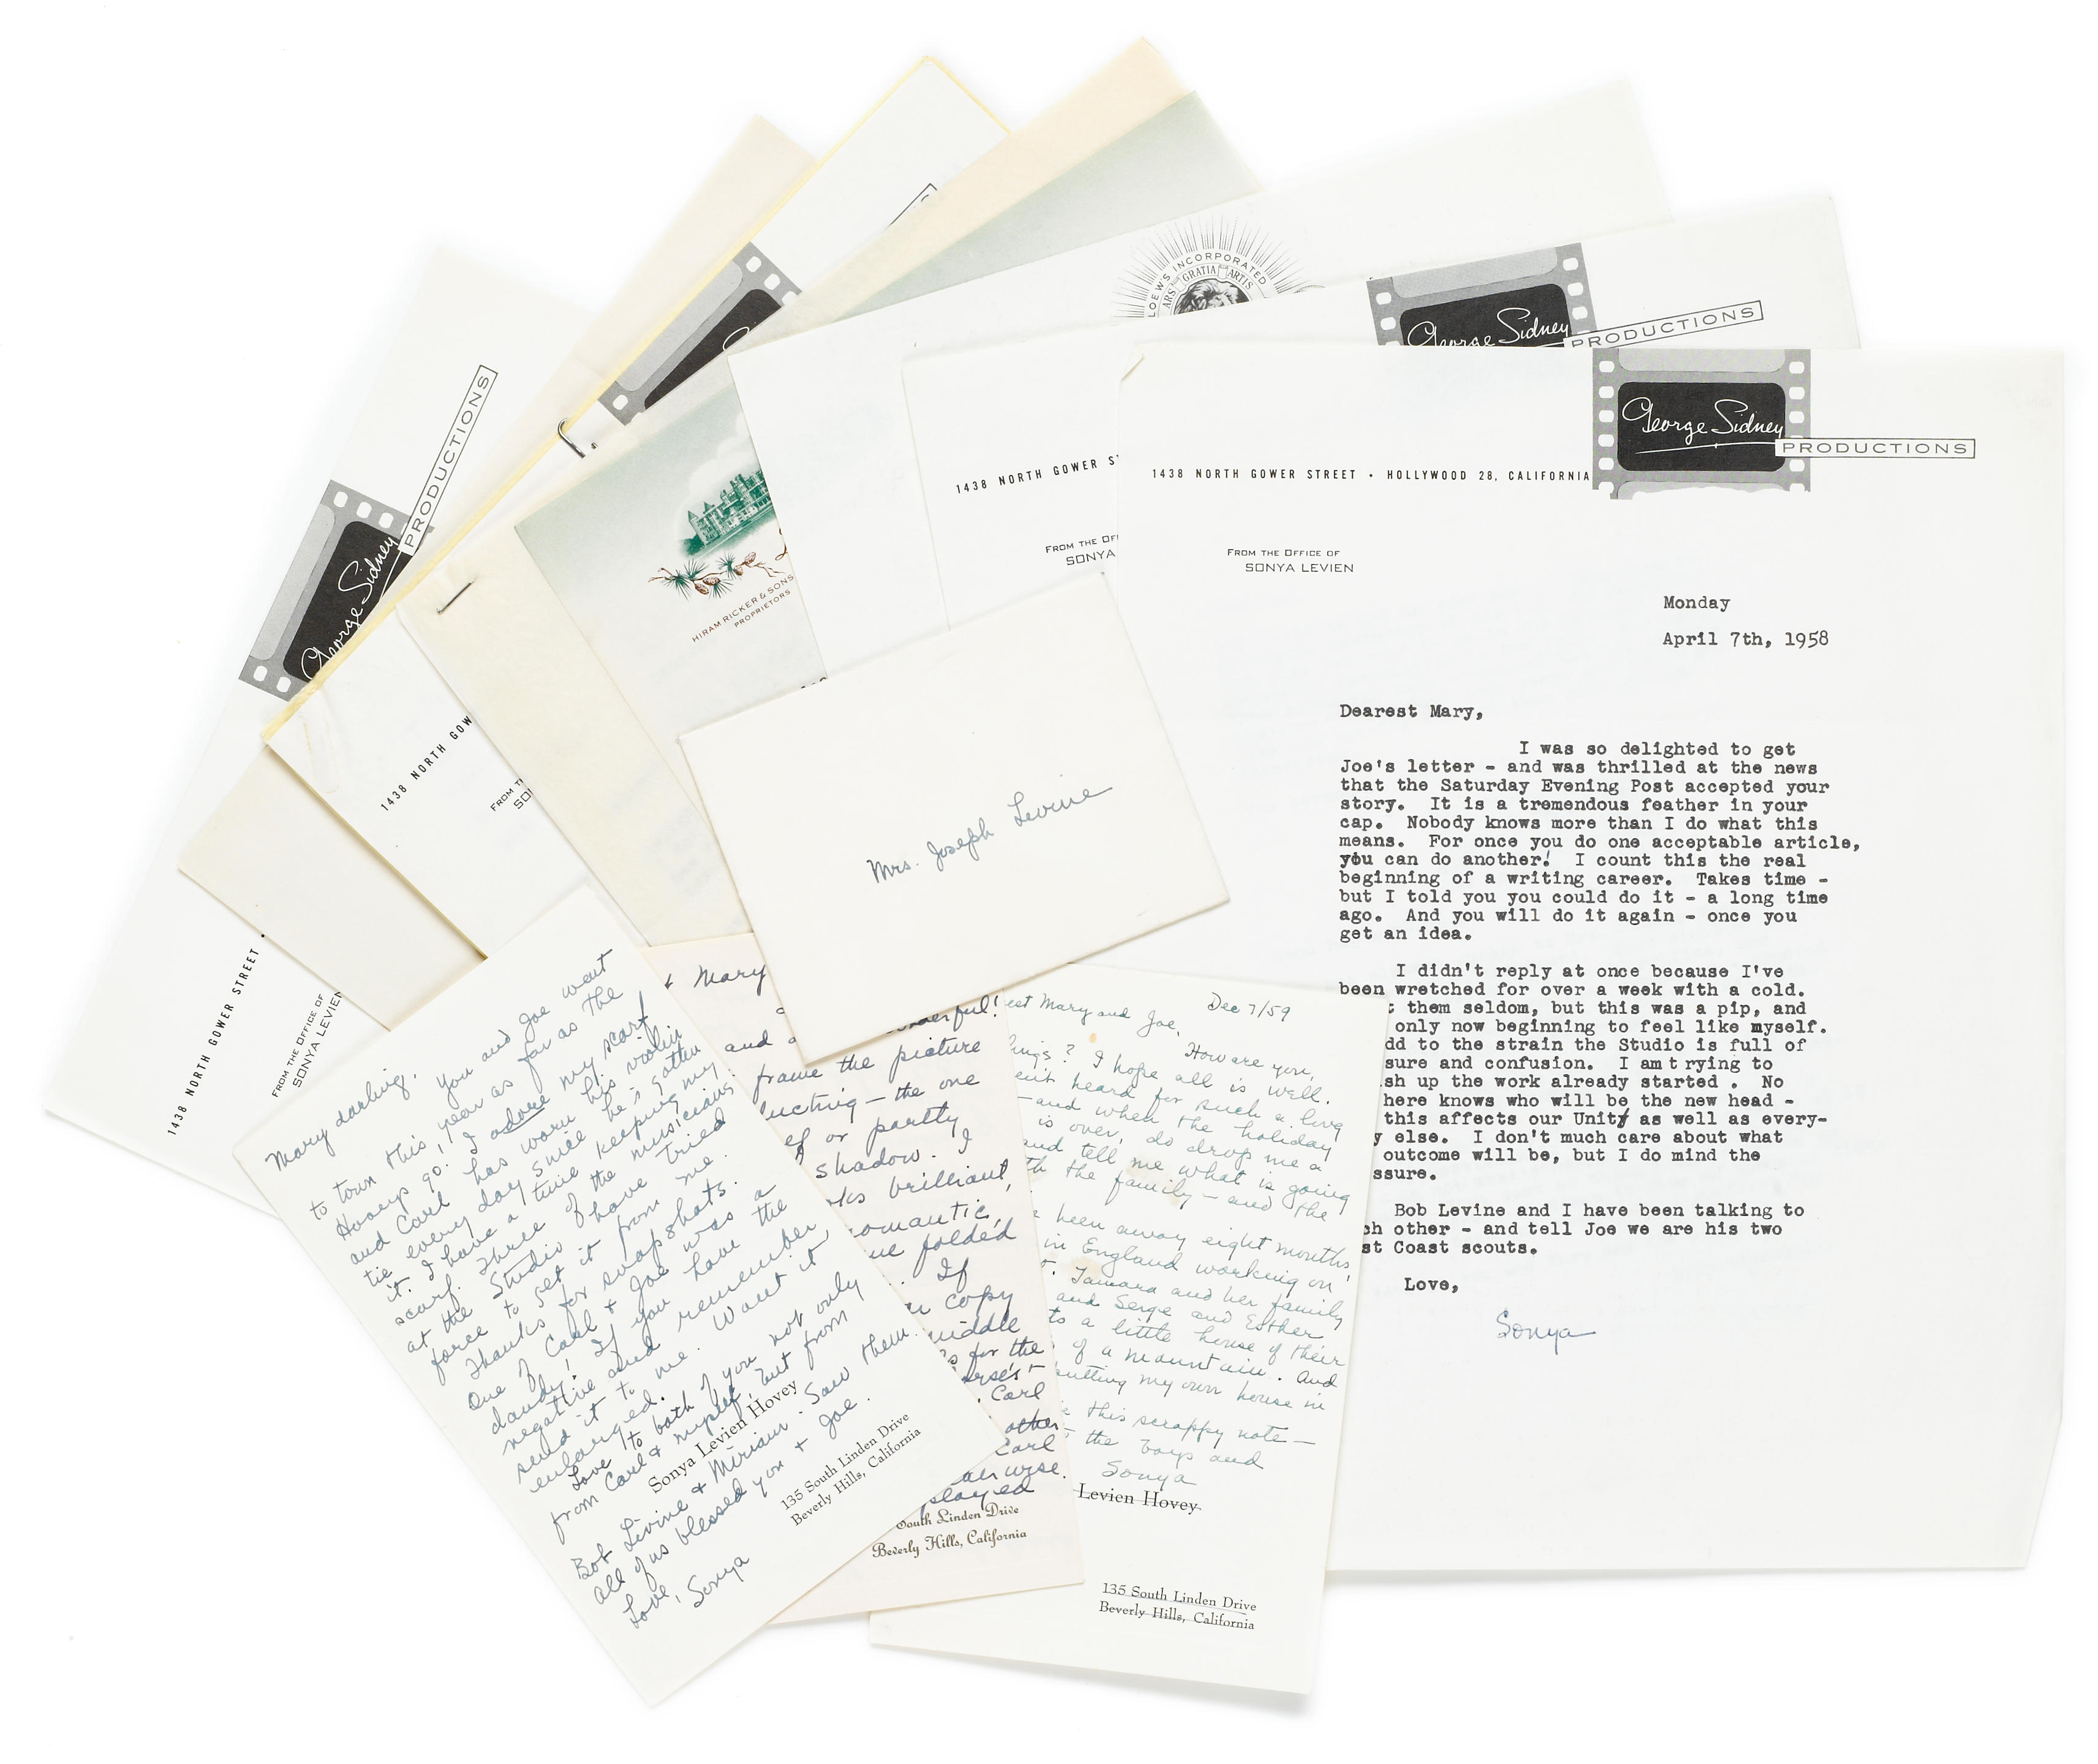 LOEW'S INCORPORATED
ARS GRATIA ARTIS
George Sidney
PRODUCTIONS
George Sidney
PRODUCTIONS
1438 NORTH GOWER STREET • HOLLYWOOD 28, CALIFORNIA
FROM THE OFFICE OF
SONYA LEVIEN
Monday
April 7th, 1958
Dearest Mary,
I was so delighted to get
Joe's letter - and was thrilled at the news
that the Saturday Evening Post accepted your
story. It is a tremendous feather in your
cap. Nobody knows more than I do what this
means. For once you do one acceptable article,
you can do another! I count this the real
beginning of a writing career. Takes time -
but I told you you could do it - a long time
ago. And you will do it again - once you
get an idea.
I didn't reply at once because I've
been wretched for over a week with a cold.
them seldom, but this was a pip, and
only now beginning to feel like myself.
dd to the strain the Studio is full of
sure and confusion. I am t rying to
sh up the work already started . No
here knows who will be the new head -
this affects our Unity as well as every-
y else. I don't much care about what
outcome will be, but I do mind the
ssure.
Bob Levine and I have been talking to
ch other - and tell Joe we are his two
st Coast scouts.
Love,
Sonya
PRODUCTIONS
George Sidney
1438 NORTH GOWER STREET •
FROM THE OFFICE OF
SONYA LEVIEN
1438 NORTH GOW
FROM TH
SO
HIRAM RICKER & SONS
PROPRIETORS
1438 NORTH GOWER ST
FROM THE OF
SONYA
Mrs. Joseph Levine
Mary darling,
You and Joe went
to town this year as far as the
Hoveys go. I adore my scarf
and Carl has worn his violin
tie every day since he's gotten
it. I have a time keeping my
scarf. Three of the musicians
at the Studio have tried
force to get it from me.
Thanks for snapshots.
One of Carl & Joe was a
dandy! If you have the
negative and remember
send it to me. Want it
enlarged.
Love to both of you not only
from Carl & myself, but from
Bob Levine & Miriam. Saw them.
all of us blessed you & Joe.
Love, Sonya
Sonya Levien Hovey
135 South Linden Drive
Beverly Hills, California
& Mary
derful!
and a
frame the picture
ucting - the one
ef or partly
shadow. I
ks brilliant,
omantic,
ue folded
If
copy
iddle
s for the
Carl
other
Carl
wise.
played
South Linden Drive
Beverly Hills, California
Dec 7/59
est Mary and Joe,
How are you,
ings? I hope all is well.
en't heard for such a long
- and when the holiday
is over, do drop me a
and tell me what is going
th the family - and the
been away eight months,
in England working on
Tamara and her family
and Serge and Esther
to a little house of their
of a mountain. And
putting my own house in
this scrappy note -
the boys and
Sonya
Levien Hovey
135 South Linden Drive
Beverly Hills, California